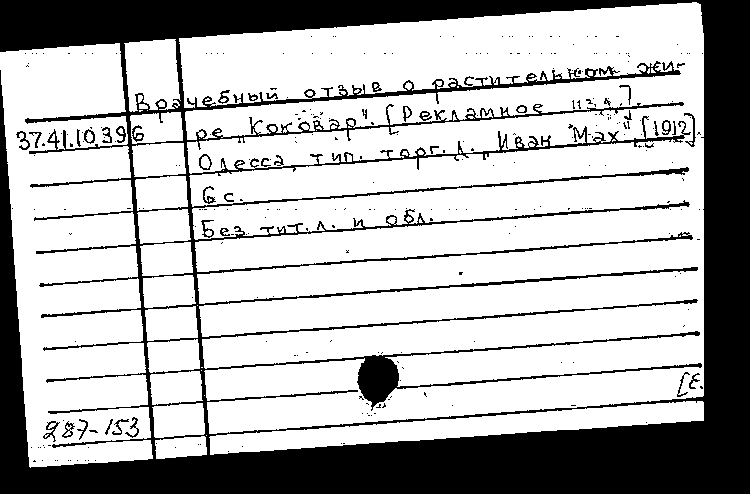 Врачебный отзыв о растительном жи-
37.41.10.396 ре „Коковар". [Рекламное изд.].
Одесса, тип. торг. д. „Иван Мах" [1912].
6 с.
Без тит. л. и обл.
[Е.
287-153